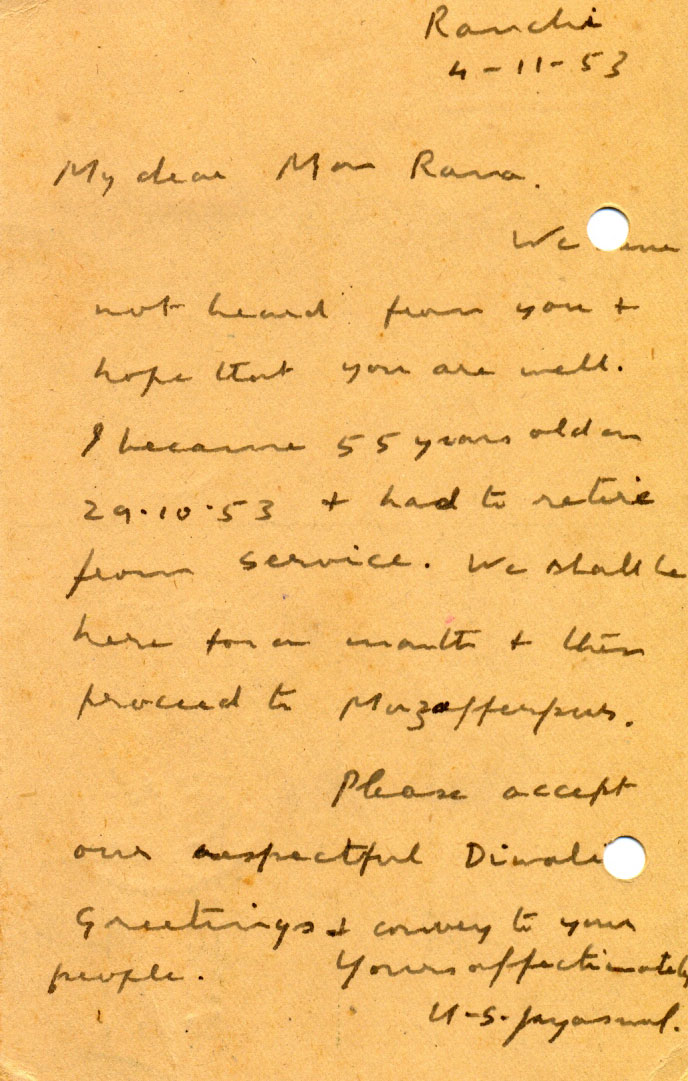 Ranchi
4-11-53
My dear Mon Rana.
We
not heard from you +
hope that you are well.
I became 55 years old on
29.10.53 + had to retire
from service. We shall be
here for a month + then
proceed to Mozafferpur.
Please accept
our respectful Diwali
Greetings & convey to your
people. Yours affectionately
U-S. Jayaswal.